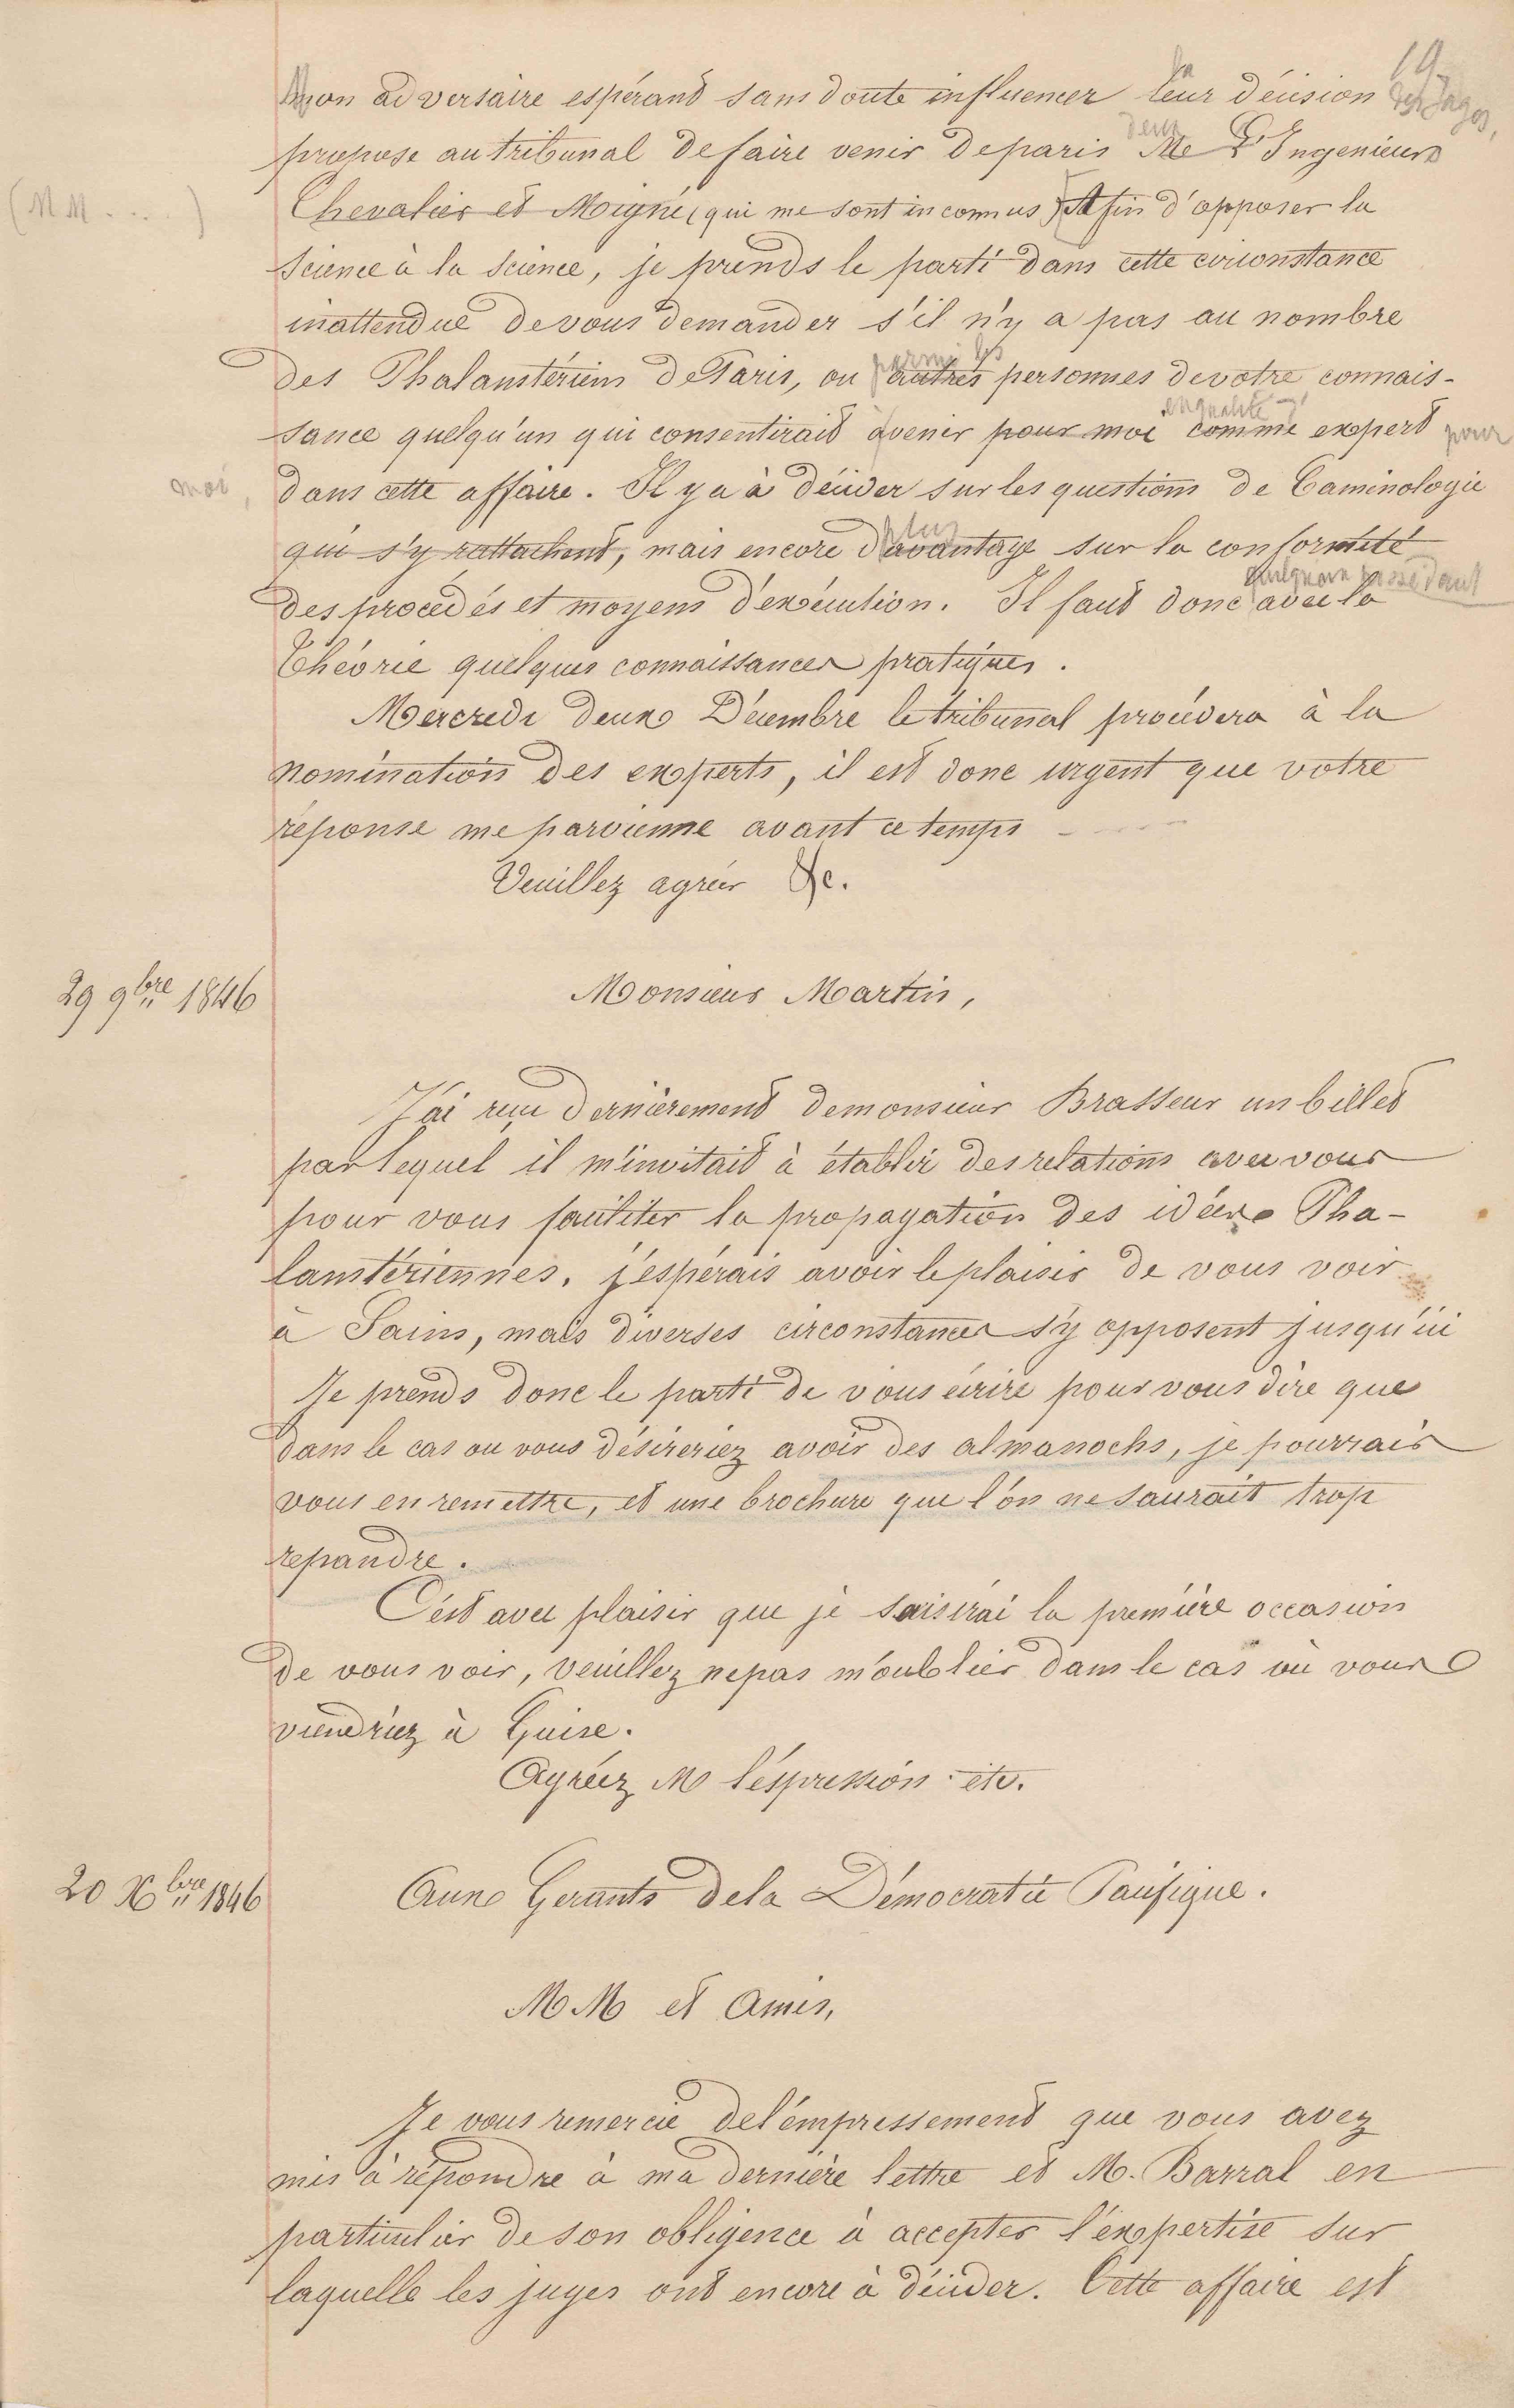 19
Mon adversaire espérant sans doute influencer leur décision la des Juges,
propose au tribunal de faire venir de paris deux Me Ingenieurs
(MM. . . )
Chevalier et Moigné (qui me sont inconnus) Afin d'opposer la
Science à la Science, je prends le parti dans cette circonstance
inattendue de vous demander s'il n'y a pas au nombre
des Phalanstériens de Paris, ou parmi les autres personnes de votre connais-
sance quelqu'un qui consentirait à venir pour moi en qualité d' comme expert pour
moi, dans cette affaire. Il y a à décider sur les questions de Caminologie
qui s'y rattachent, mais encore davantage plus sur la conformité
des procédés et moyens d'exécution. Il faut donc quelqu'un possédant avec la
Théorie quelques connaissances pratiques.
Mercredi deux Décembre le tribunal procédera à la
nomination des experts, il est donc urgent que votre
réponse me parvienne avant ce temps
Veuillez agréer &c.
29 9bre 1846
Monsieur Martin,
J'ai reçu dernièrement de monsieur Brasseur un billet
par lequel il m'invitait à établir des relations avec vous
pour vous faciliter la propagation des idées Pha-
lanstériennes. j'espérais avoir le plaisir de vous voir
à Sains, mais diverses circonstances s'y opposent jusqu'ici
Je prends donc le parti de vous écrire pour vous dire que
dans le cas ou vous désireriez avoir des almanachs, je pourrais
vous en remettre, et une brochure que l'on ne saurait trop
repandre.
C'est avec plaisir que je saisirai la première occasion
de vous voir, veuillez ne pas m'oublier dans le cas où vous
viendriez à Guise.
Agréez M l'éxpression etc.
20 Xbre 1846
Aux Gerants de la Démocratie Pacifique.
MM et Amis,
Je vous remercie de l'empressement que vous avez
mis à répondre à ma dernière lettre et M. Barral en
particulier de son obligence à accepter l'expertise sur
laquelle les juges ont encore à décider. Cette affaire est